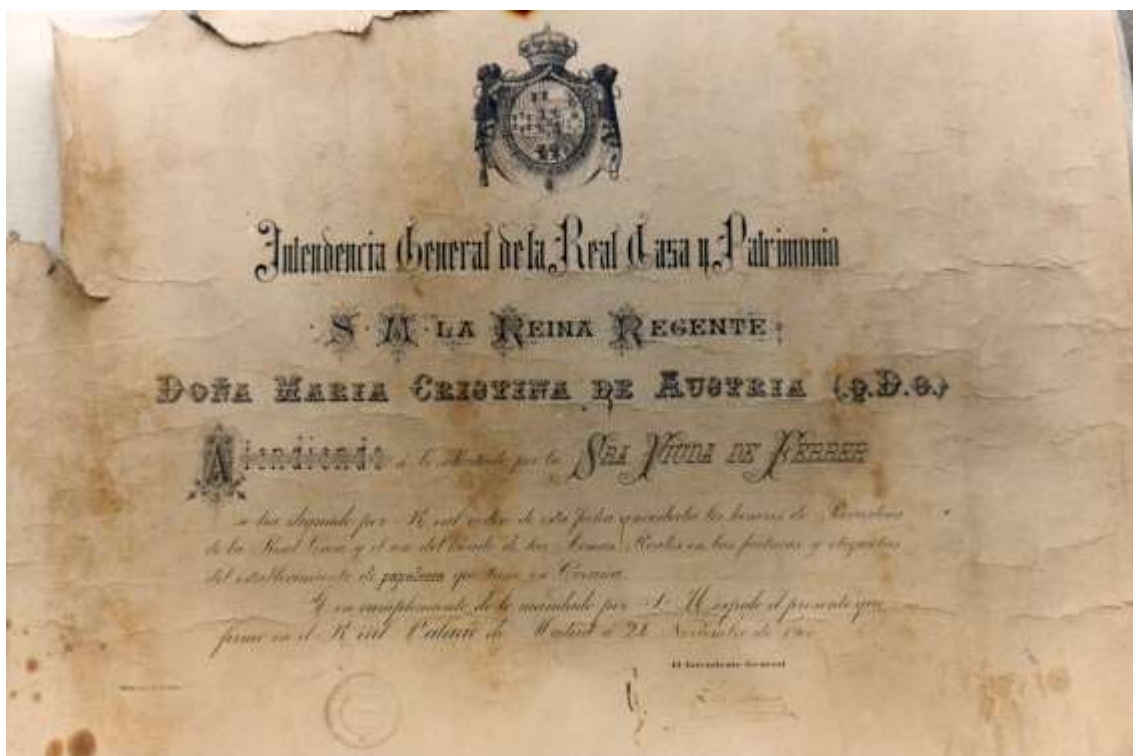 Intendencia General de la Real Casa y Patrimonio
S. M. LA REINA REGENTE
DOÑA MARIA CRISTINA DE AUSTRIA (Q.D.G.)
Atendiendo a lo solicitado por la SRA VIUDA DE FERRER
se ha dignado por Real orden de esta fecha concederle los honores de Proveedora
de la Real Casa y el uso del Escudo de Sus Armas Reales en las facturas y etiquetas
del establecimiento de papeleria que tiene en Coruña.
Y en cumplimiento de lo mandado por S. M. expido el presente que
firmo en el Real Palacio de Madrid a 21 Noviembre de
El Intendente General